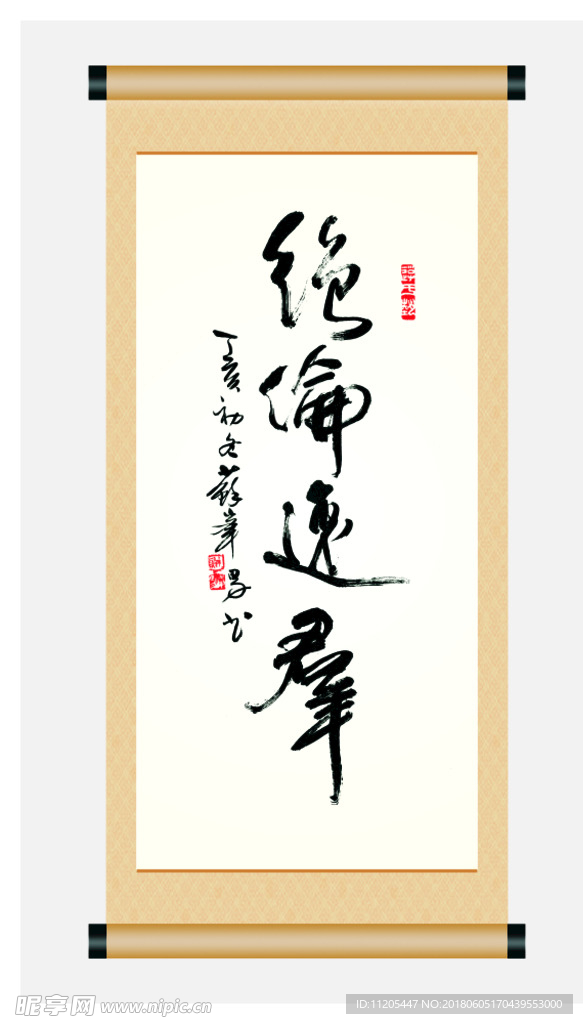 絶倫逸羣
丁亥初冬蘇峯男书
昵享网 www.nipic.cn
ID:11205447 NO:20180605170439553000